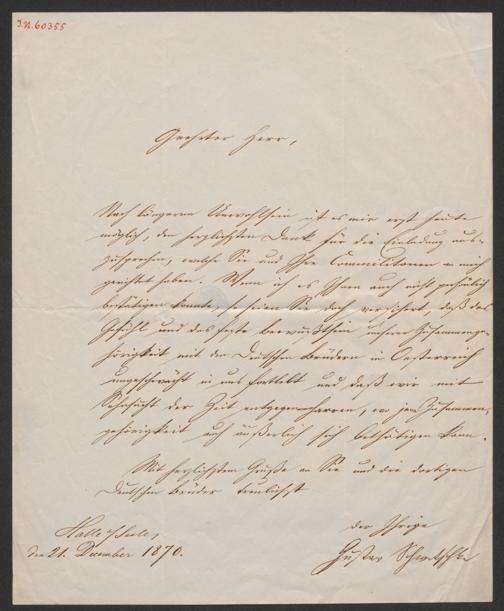 I.N. 60355
Geehrter Herr,
Nach längerem Unwohlsein ist es mir erst heute
möglich, den herzlichsten Dank für die Einladung aus-
zusprechen, welche Sie und Ihre Commilitonen an mich
gerichtet haben. Wenn ich es Ihnen auch nicht persönlich
bethätigen konnte, so seien Sie doch versichert, daß das
Gefühl und das feste Bewußtsein unserer Zusammenge-
hörigkeit mit den Deutschen Brüdern in Oesterreich
ungeschwächt in uns fortlebt und daß wir mit
Sehnsucht der Zeit entgegen harren, wo jene Zusammen-
gehörigkeit auch äußerlich sich bethätigen kann.
Mit herzlichstem Gruße an Sie und die dortigen
Deutschen Brüder treulichst
der Ihrige
Halle a/Saale,
den 21. December 1870.
Gustav Schwetschke